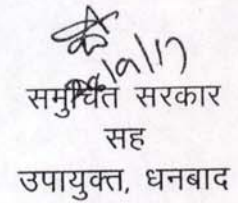 समुचित सरकार
सह
उपायुक्त, धनबाद